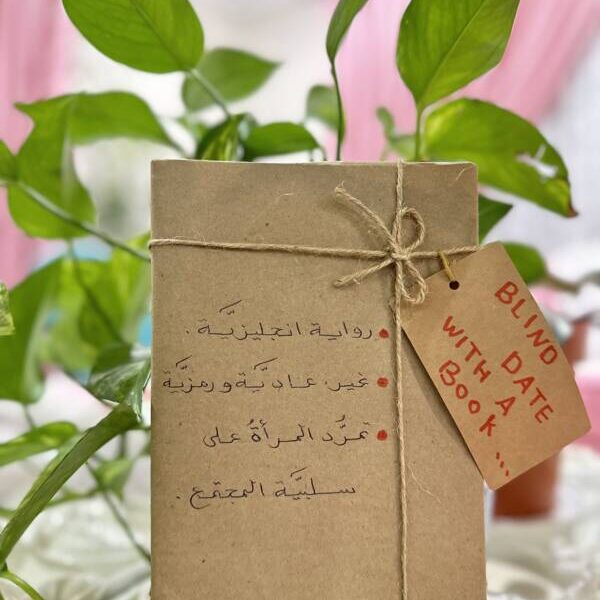 • رواية انجليزيَّة .
• غير عاديَّة ورمزيَّة
• تمرُّد المرأةُ على
سلبيَّة المجتمع .
BLIND
DATE
WITH A
BOOK...